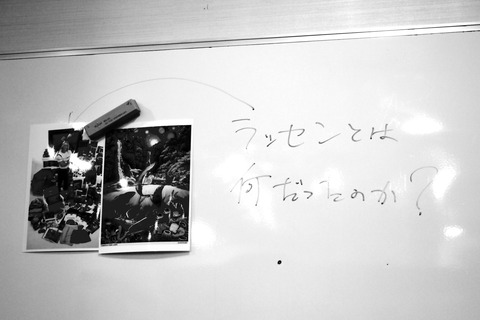 ラッセンとは
何だったのか?